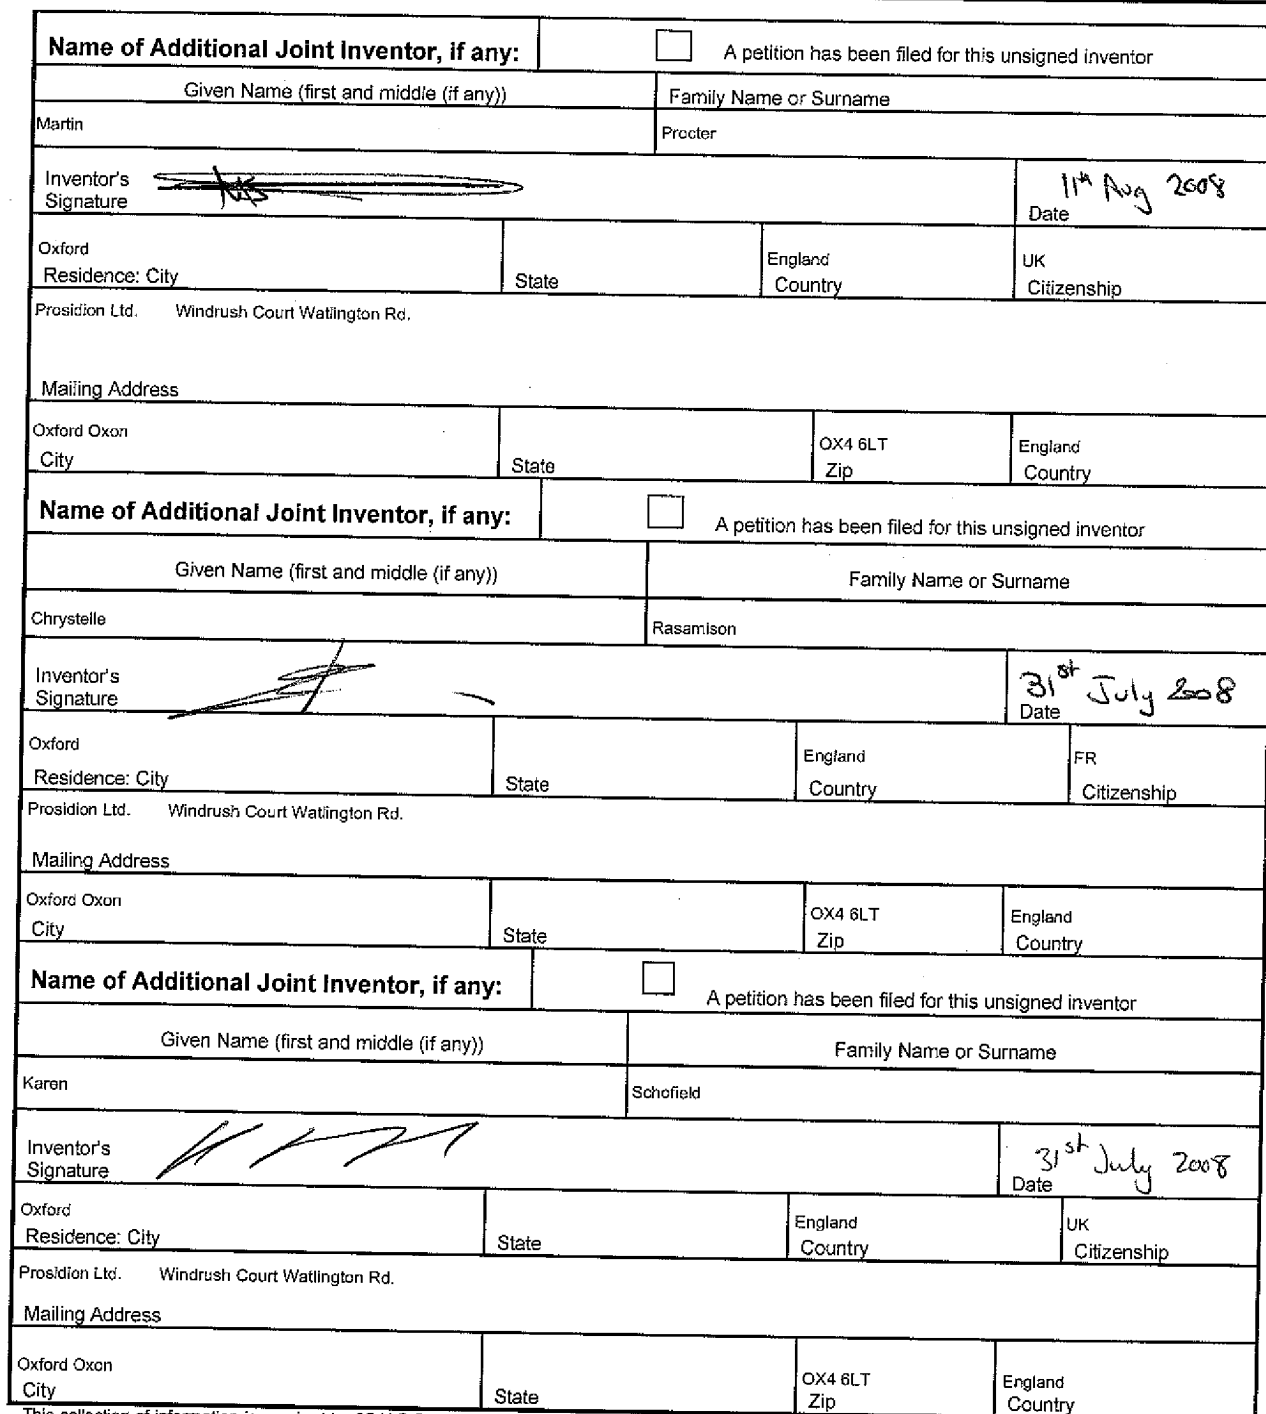 Name of Additional Joint Inventor, if any: A petition has been filed for this unsigned inventor
Given Name (first and middle (if any)) Family Name or Surname
Martin Procter
Inventor's Signature 11th Aug 2008 Date
Oxford England UK
Residence: City State Country Citizenship
Prosidion Ltd. Windrush Court Watlington Rd.
Mailing Address
Oxford Oxon OX4 6LT England
City State Zip Country
Name of Additional Joint Inventor, if any: A petition has been filed for this unsigned inventor
Given Name (first and middle (if any)) Family Name or Surname
Chrystelle Rasamison
Inventor's Signature 31st July 2008 Date
Oxford England FR
Residence: City State Country Citizenship
Prosidion Ltd. Windrush Court Watlington Rd.
Mailing Address
Oxford Oxon OX4 6LT England
City State Zip Country
Name of Additional Joint Inventor, if any: A petition has been filed for this unsigned inventor
Given Name (first and middle (if any)) Family Name or Surname
Karen Schofield
Inventor's Signature 31st July 2008 Date
Oxford England UK
Residence: City State Country Citizenship
Prosidion Ltd. Windrush Court Watlington Rd.
Mailing Address
Oxford Oxon OX4 6LT England
City State Zip Country